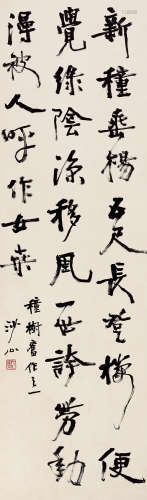 新種垂楊五尺長登樓便
覺綠陰涼移風一世誇勞動
澤被人呼作女桑
種樹舊作之一
沙心